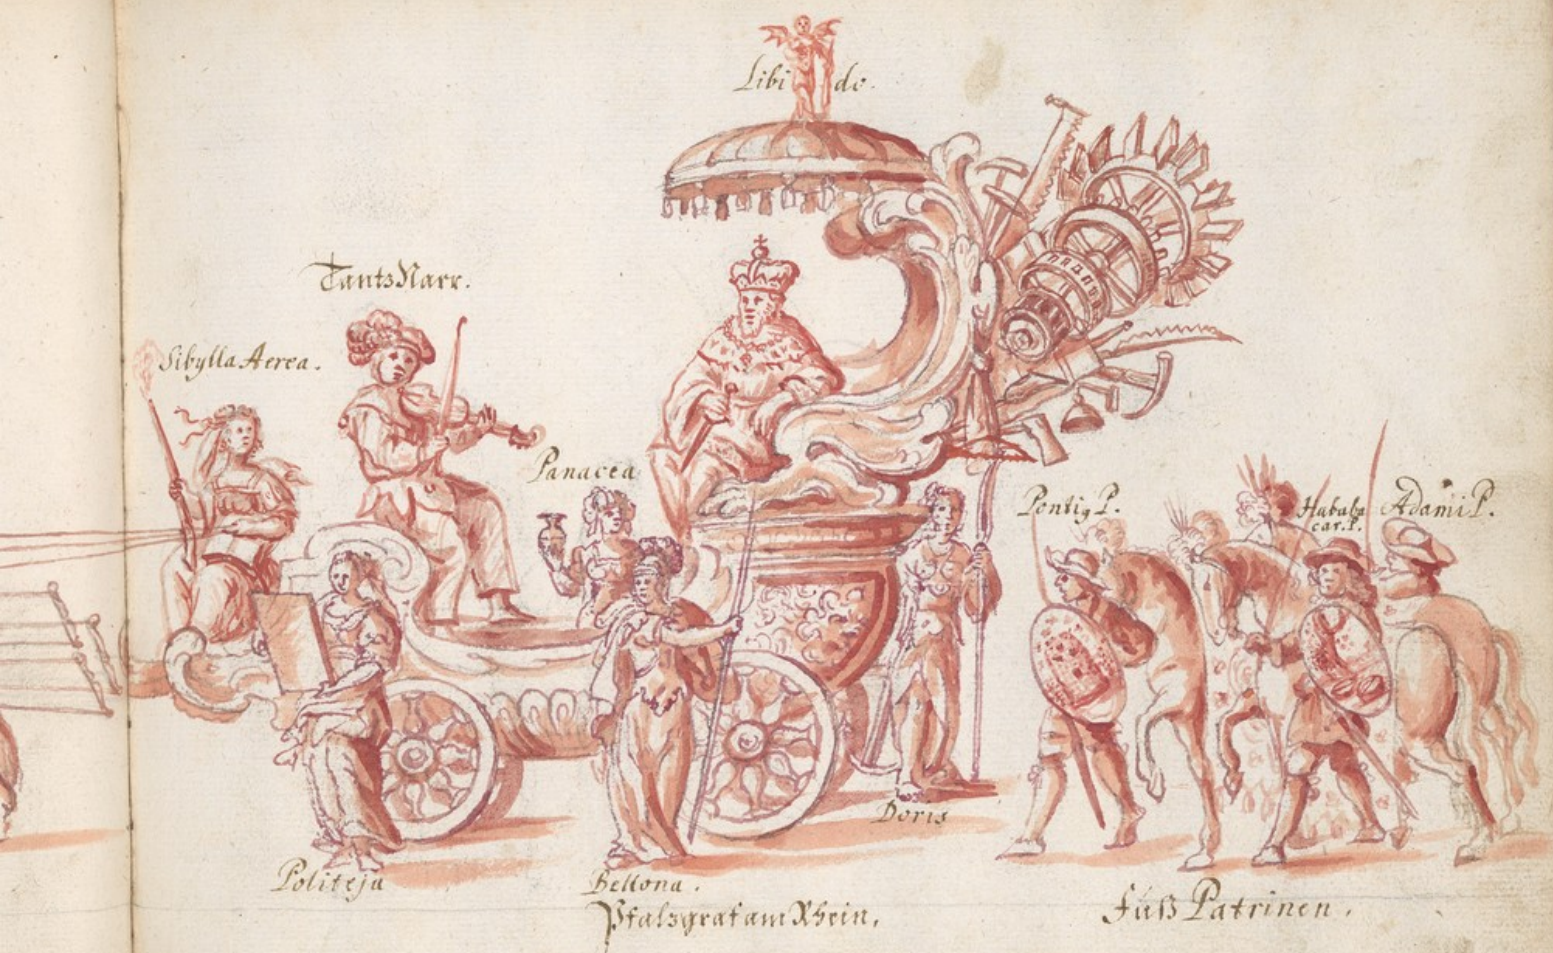 Libido.
Tantz Narr.
Sibylla Aerea.
Panacea
Pontig P.
Hababa
car. P.
Adami P.
Doris
Politeja
Bellona.
Pfalzgraf am Rhein.
Füß Patrinen.